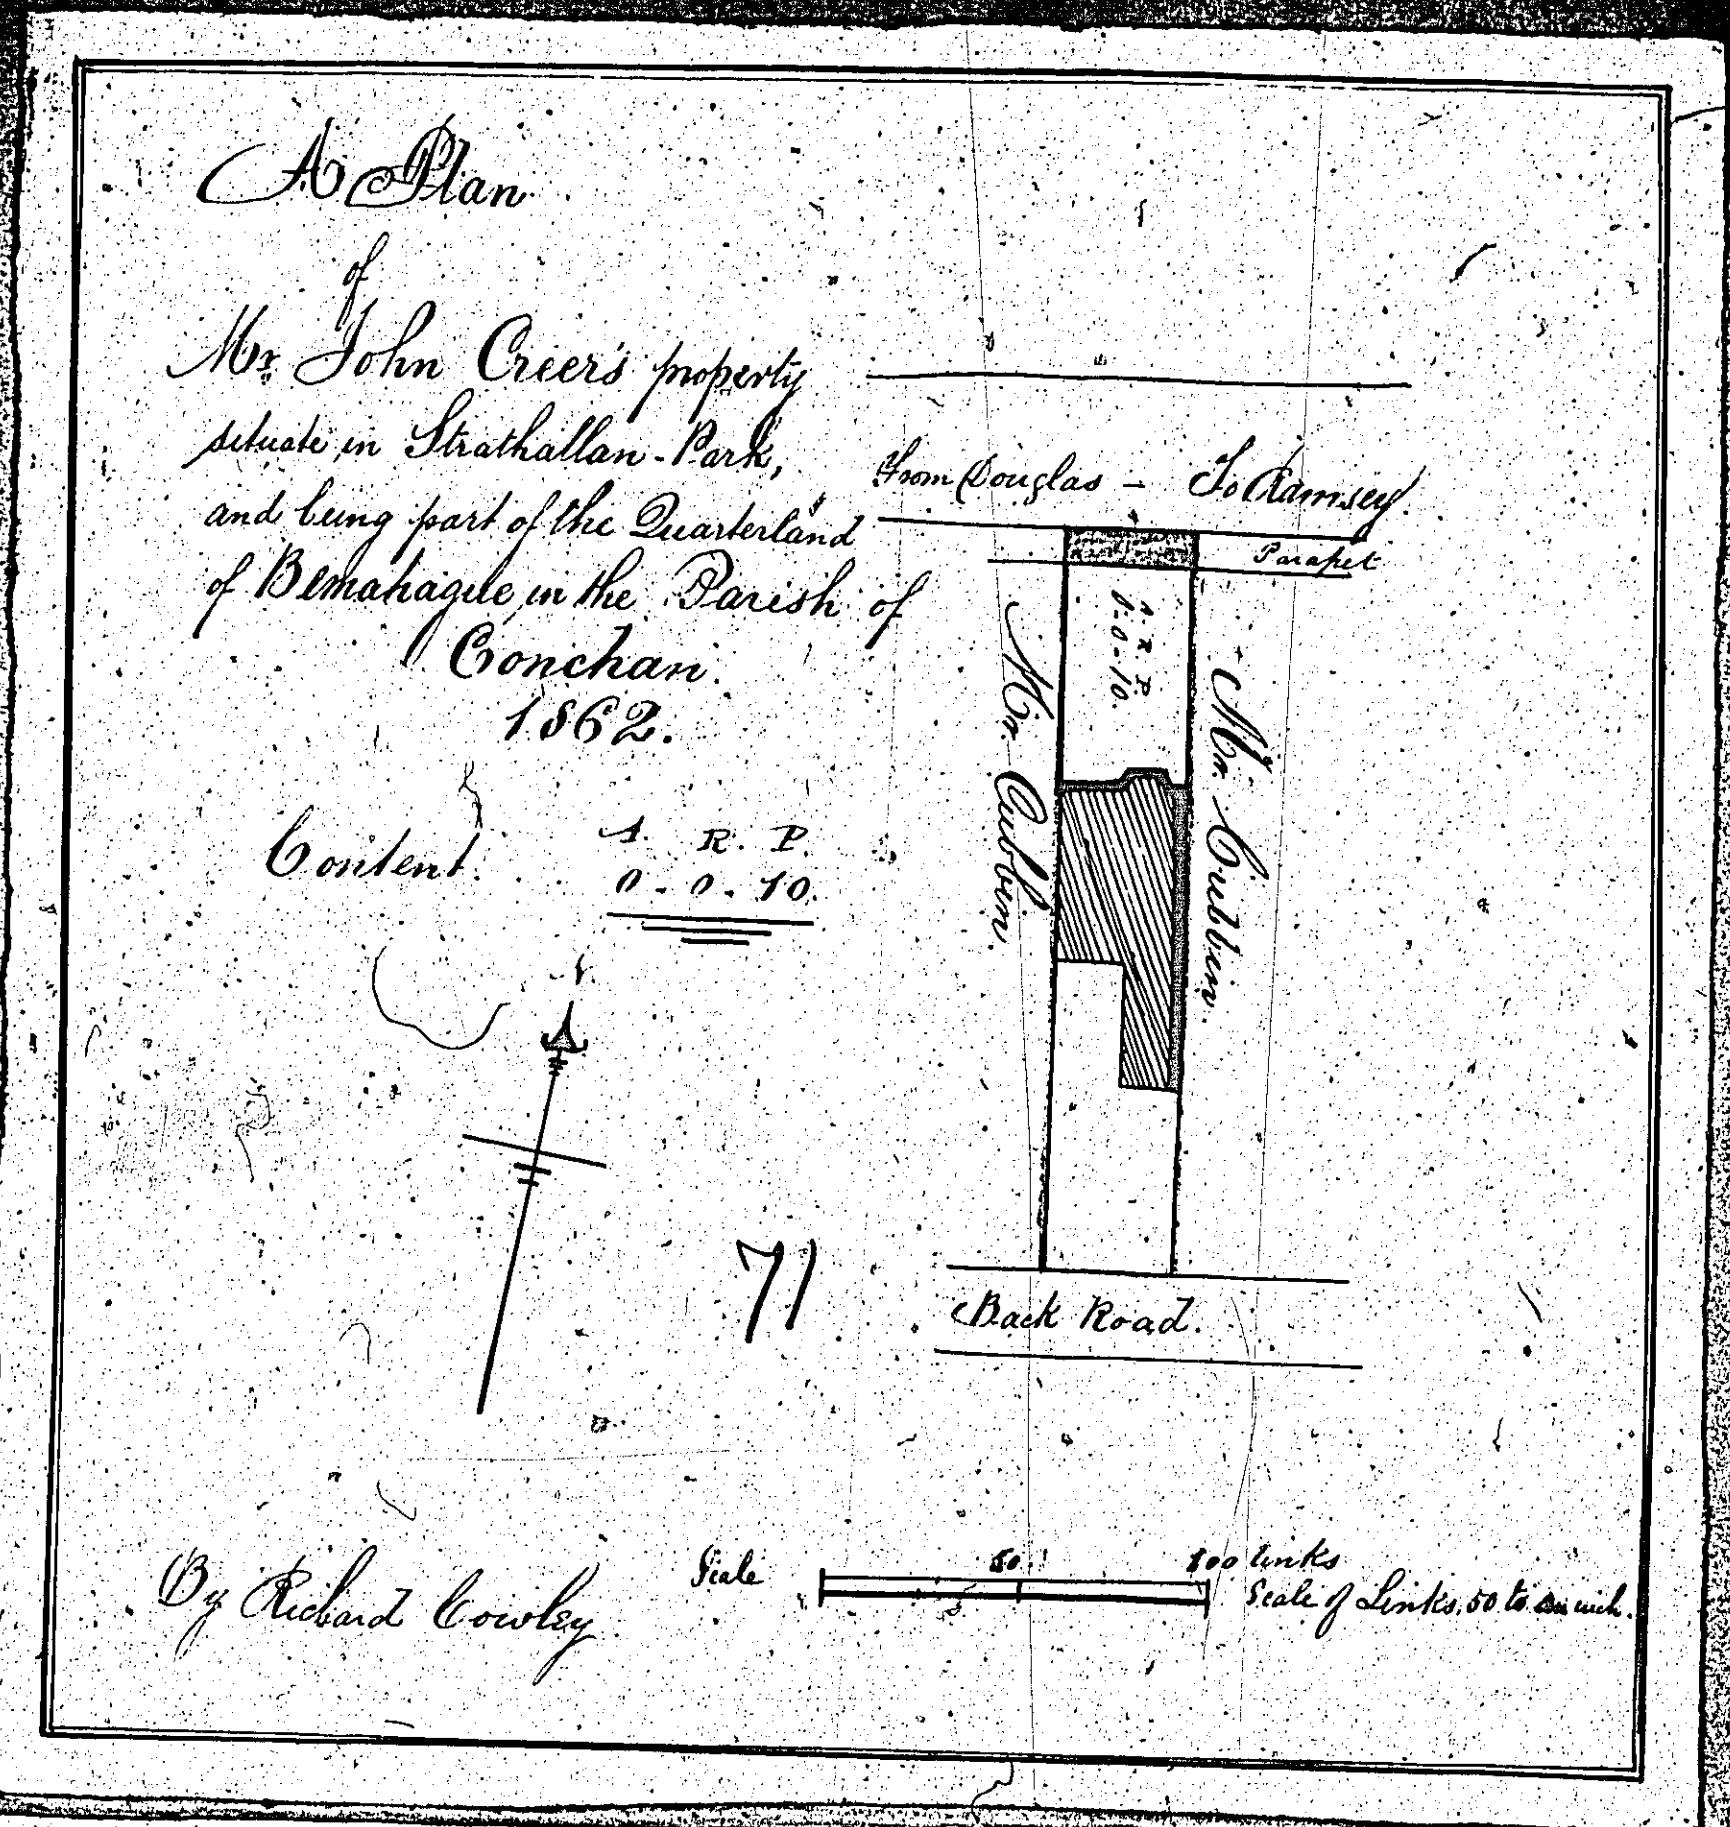 A Plan
of
Mr. John Creer's property
situate in Strathallan-Park,
and being part of the Quarterland
of Bemahague, in the Parish of
Conchan.
1862.
Content. A. R. P.
0-0-10.
N.
From Douglas - To Ramsey.
Parapet
A. R. P.
0-0-10.
Mr. Cubbin.
Mr. Cubbin.
Back Road.
71
By Richard Cowley
Scale 50 100 links
Scale of Links, 50 to an inch.